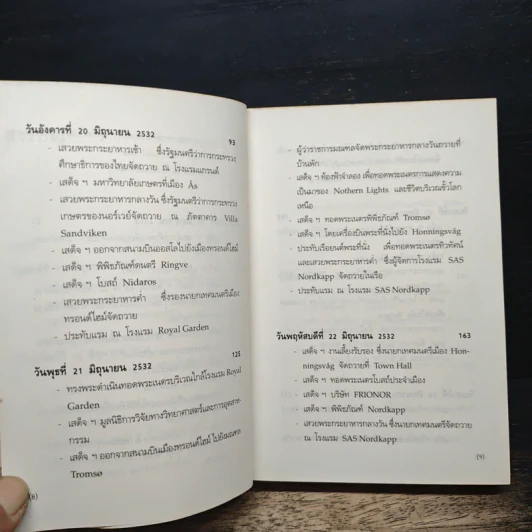 วันอังคารที่ 20 มิถุนายน 2532 93
- เสวยพระกระยาหารเช้า ซึ่งรัฐมนตรีว่าการกระทรวง
ศึกษาธิการของไทยจัดถวาย ณ โรงแรมแกรนด์
- เสด็จ ฯ มหาวิทยาลัยเกษตรที่เมือง Ås
- เสวยพระกระยาหารกลางวัน ซึ่งรัฐมนตรีว่าการกระทรวง
เกษตรของนอร์เวย์จัดถวาย ณ ภัตตาคาร Villa
Sandviken
- เสด็จ ฯ ออกจากสนามบินออสโลไปยังเมืองทรอนด์ไฮม์
- เสด็จ ฯ พิพิธภัณฑ์ดนตรี Ringve
- เสด็จ ฯ โบสถ์ Nidaros
- เสวยพระกระยาหารค่ำ ซึ่งรองนายกเทศมนตรีเมือง
ทรอนด์ไฮม์จัดถวาย
- ประทับแรม ณ โรงแรม Royal Garden
วันพุธที่ 21 มิถุนายน 2532 125
- ทรงพระดำเนินทอดพระเนตรบริเวณใกล้โรงแรม Royal
Garden
- เสด็จ ฯ มูลนิธิการวิจัยทางวิทยาศาสตร์และการอุตสาห-
กรรม
- เสด็จ ฯ ออกจากสนามบินเมืองทรอนด์ไฮม์ ไปยังมณฑล
Tromsø
(8)
ผู้ว่าราชการมณฑลจัดพระกระยาหารกลางวันถวายที่
บ้านพัก
- เสด็จ ฯ ท้องฟ้าจำลอง เพื่อทอดพระเนตรการแสดงความ
เป็นมาของ Nothern Lights และชีวิตบริเวณขั้วโลก
เหนือ
- เสด็จ ฯ ทอดพระเนตรพิพิธภัณฑ์ Tromsø
- เสด็จ ฯ โดยเครื่องบินพระที่นั่งไปยัง Honningsvåg
- ประทับเรือยนต์พระที่นั่ง เพื่อทอดพระเนตรทิวทัศน์
และเสวยพระกระยาหารค่ำ ซึ่งผู้จัดการโรงแรม SAS
Nordkapp จัดถวายในเรือ
- ประทับแรม ณ โรงแรม SAS Nordkapp
วันพฤหัสบดีที่ 22 มิถุนายน 2532 163
- เสด็จ ฯ งานเลี้ยงรับรอง ซึ่งนายกเทศมนตรีเมือง Hon-
ningsvåg จัดถวายที่ Town Hall
- เสด็จ ฯ ทอดพระเนตรโบสถ์ประจำเมือง
- เสด็จ ฯ บริษัท FRIONOR
- เสด็จ ฯ พิพิธภัณฑ์ Nordkapp
- เสวยพระกระยาหารกลางวัน ซึ่งนายกเทศมนตรีจัดถวาย
ณ โรงแรม SAS Nordkapp
(9)